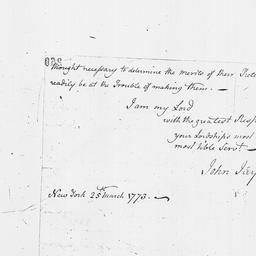 thought necessary to determine the merits of their
readily be at the Trouble of making them. —
I am my Lord
with the greatest
your Lordship's most
most hble Servt. —
John Jay
New York 25th March 1773. —